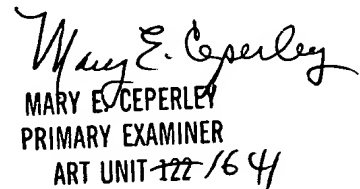 Mary E. Ceperley
MARY E. CEPERLEY
PRIMARY EXAMINER
ART UNIT 122 1641